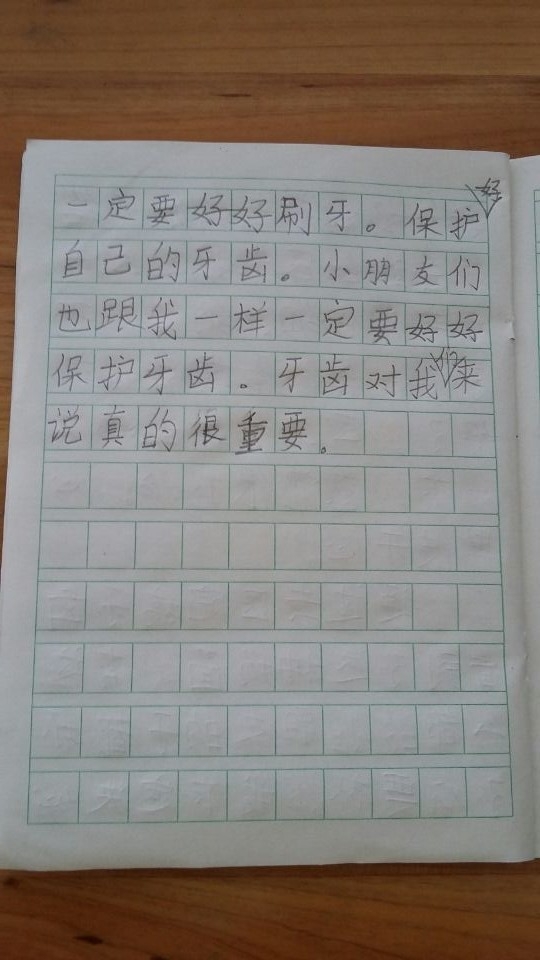 一定要好好刷牙。保护好
自己的牙齿。小朋友们
也跟我一样一定要好好
保护牙齿。牙齿对我们来
说真的很重要。